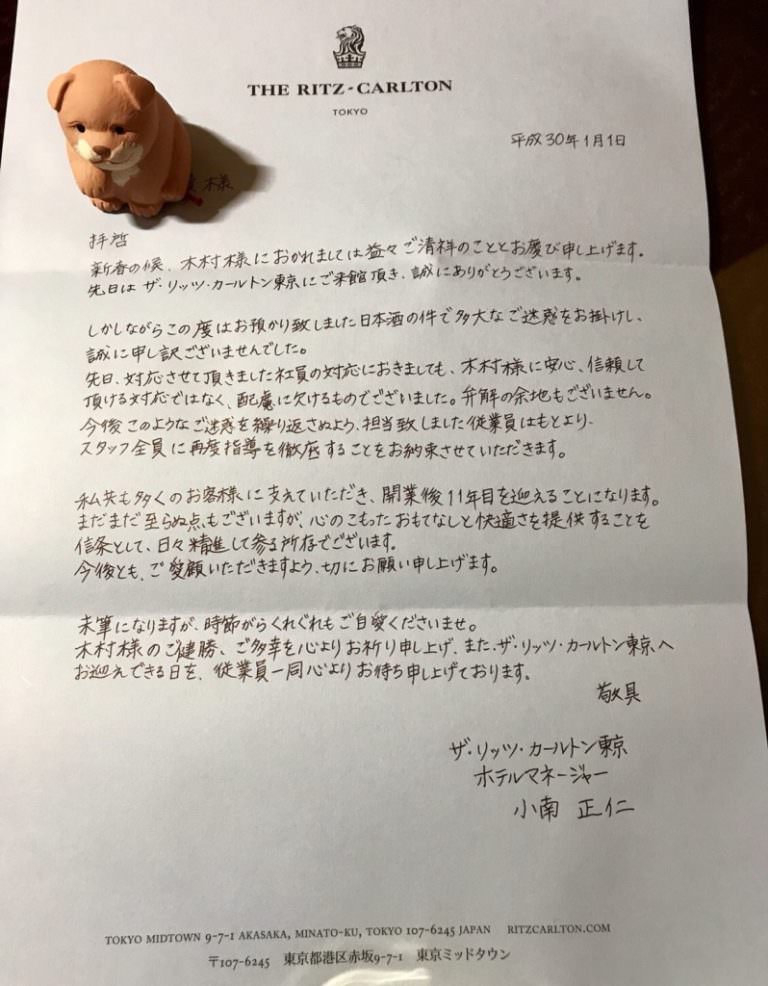 THE RITZ-CARLTON
TOKYO
平成30年1月1日
様
拝啓
新春の候、木村様におかれましては益々ご清祥のこととお慶び申し上げます。
先日は ザ・リッツ・カールトン東京にご来館頂き、誠にありがとうございます。
しかしながらこの度はお預かり致しました日本酒の件で多大なご迷惑をお掛けし、
誠に申し訳ございませんでした。
先日、対応させて頂きました社員の対応におきましても、木村様に安心、信頼して
頂ける対応ではなく、配慮に欠けるものでございました。弁解の余地もございません。
今後このようなご迷惑を繰り返さぬよう、担当致しました従業員はもとより、
スタッフ全員に再度指導を徹底することをお約束させていただきます。
私共も多くのお客様に支えていただき、開業後11年目を迎えることになります。
まだまだ至らぬ点もございますが、心のこもったおもてなしと快適さを提供することを
信条として、日々精進して参る所存でございます。
今後とも、ご愛顧いただきますよう、切にお願い申し上げます。
末筆になりますが、時節がらくれぐれもご自愛くださいませ。
木村様のご健勝、ご多幸を心よりお祈り申し上げ、また、ザ・リッツ・カールトン東京へ
お迎えできる日を、従業員一同心よりお待ち申し上げております。
敬具
ザ・リッツ・カールトン東京
ホテルマネージャー
小南 正仁
TOKYO MIDTOWN 9-7-1 AKASAKA, MINATO-KU, TOKYO 107-6245 JAPAN RITZCARLTON.COM
〒107-6245 東京都港区赤坂9-7-1 東京ミッドタウン